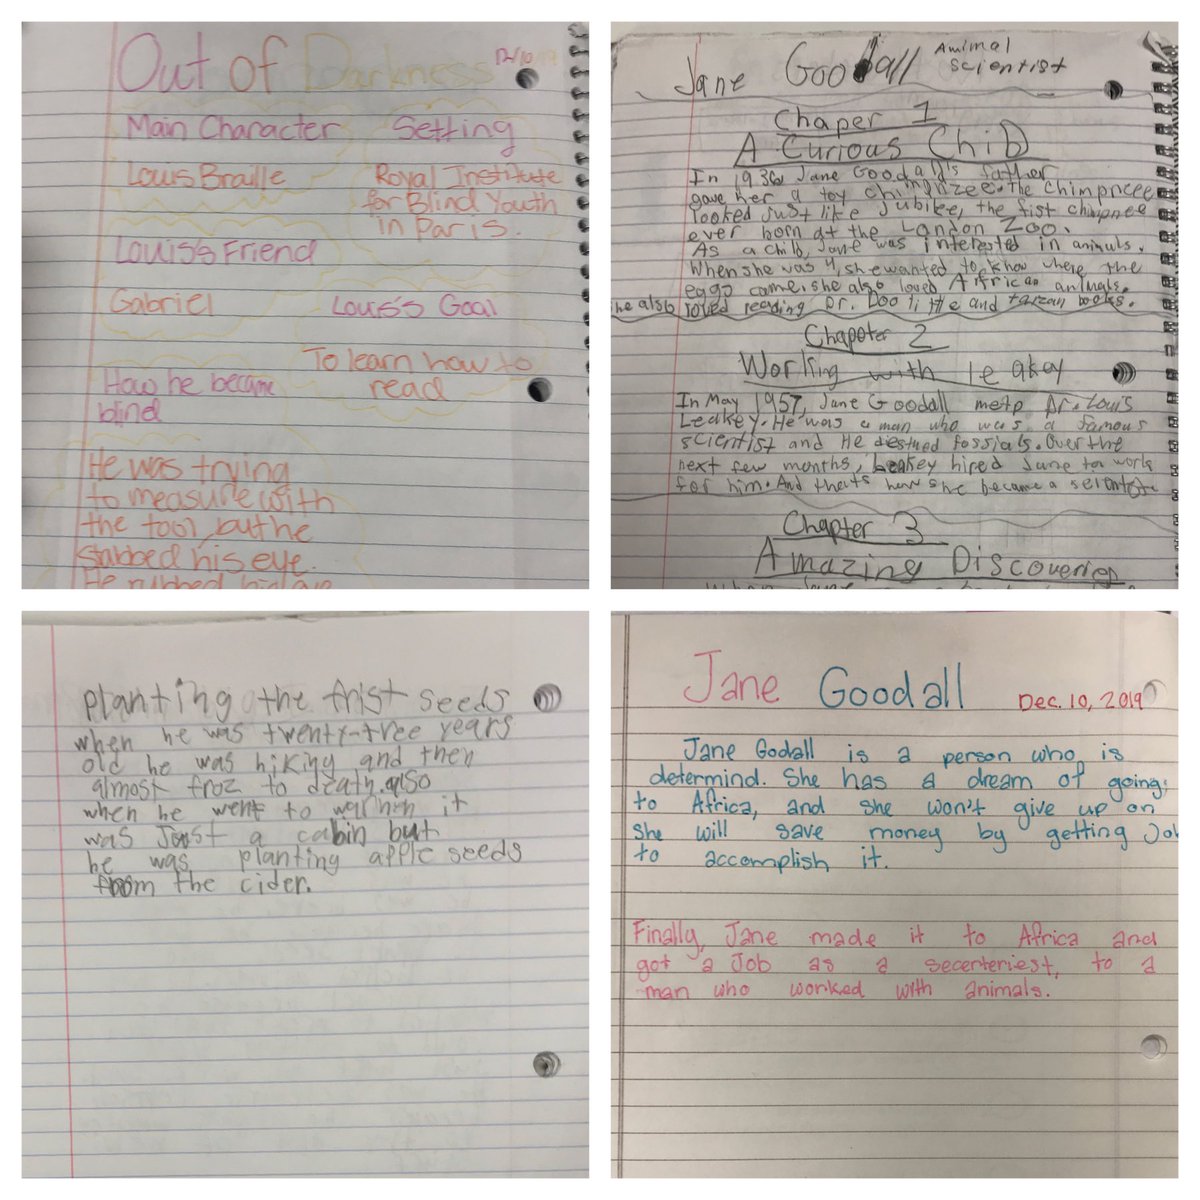 Out of Darkness
12/10
Main Character
Setting
Louis Braille
Royal Institute
for Blind Youth
in Paris.
Louis's Friend
Gabriel
Louis's Goal
To learn how to
read
How he became
blind
He was trying
to measure with
the tool, but he
stabbed his eye.
He rubbed his
Jane Goodall Amimal
scientist
Chaper 1
A Curious Chib
In 1936 Jane Goodall's father
gave her a toy chimpnzee. The chimpncee
looked just like Jubilee, the fist chimpnee
ever born at the London Zoo.
As a chib, Jane was interested in animuls.
When she was 4, she wanted to know where the
eggs came. she also loved African animals.
he also loved reading Dr. Doo little and tarzan books.
Chapoter 2
Working with leakay
In May 1957, Jane Goodall metp Dr. Louis
Leakey. He was a man who was a famous
scientist and He diestued fossials. Over the
next few months, Leakey hired Jane to work
for him. And thats how she became a
Chapter 3
Amazing Discoveries
planting the frist seeds
when he was twenty-tree years
old he was hiking and then
almost froz to death. also
when he went to it
was Joust a cabin but
he was planting apple seeds
from the cider.
Jane Goodall
Dec. 10, 2019
Jane Godall is a person who is
determind. She has a dream of going
to Africa, and she won't give up on
she will save money by getting Jo
to accomplish it.
Finally, Jane made it to Africa and
got a Job as a secerteriest, to a
man who worked with animals.